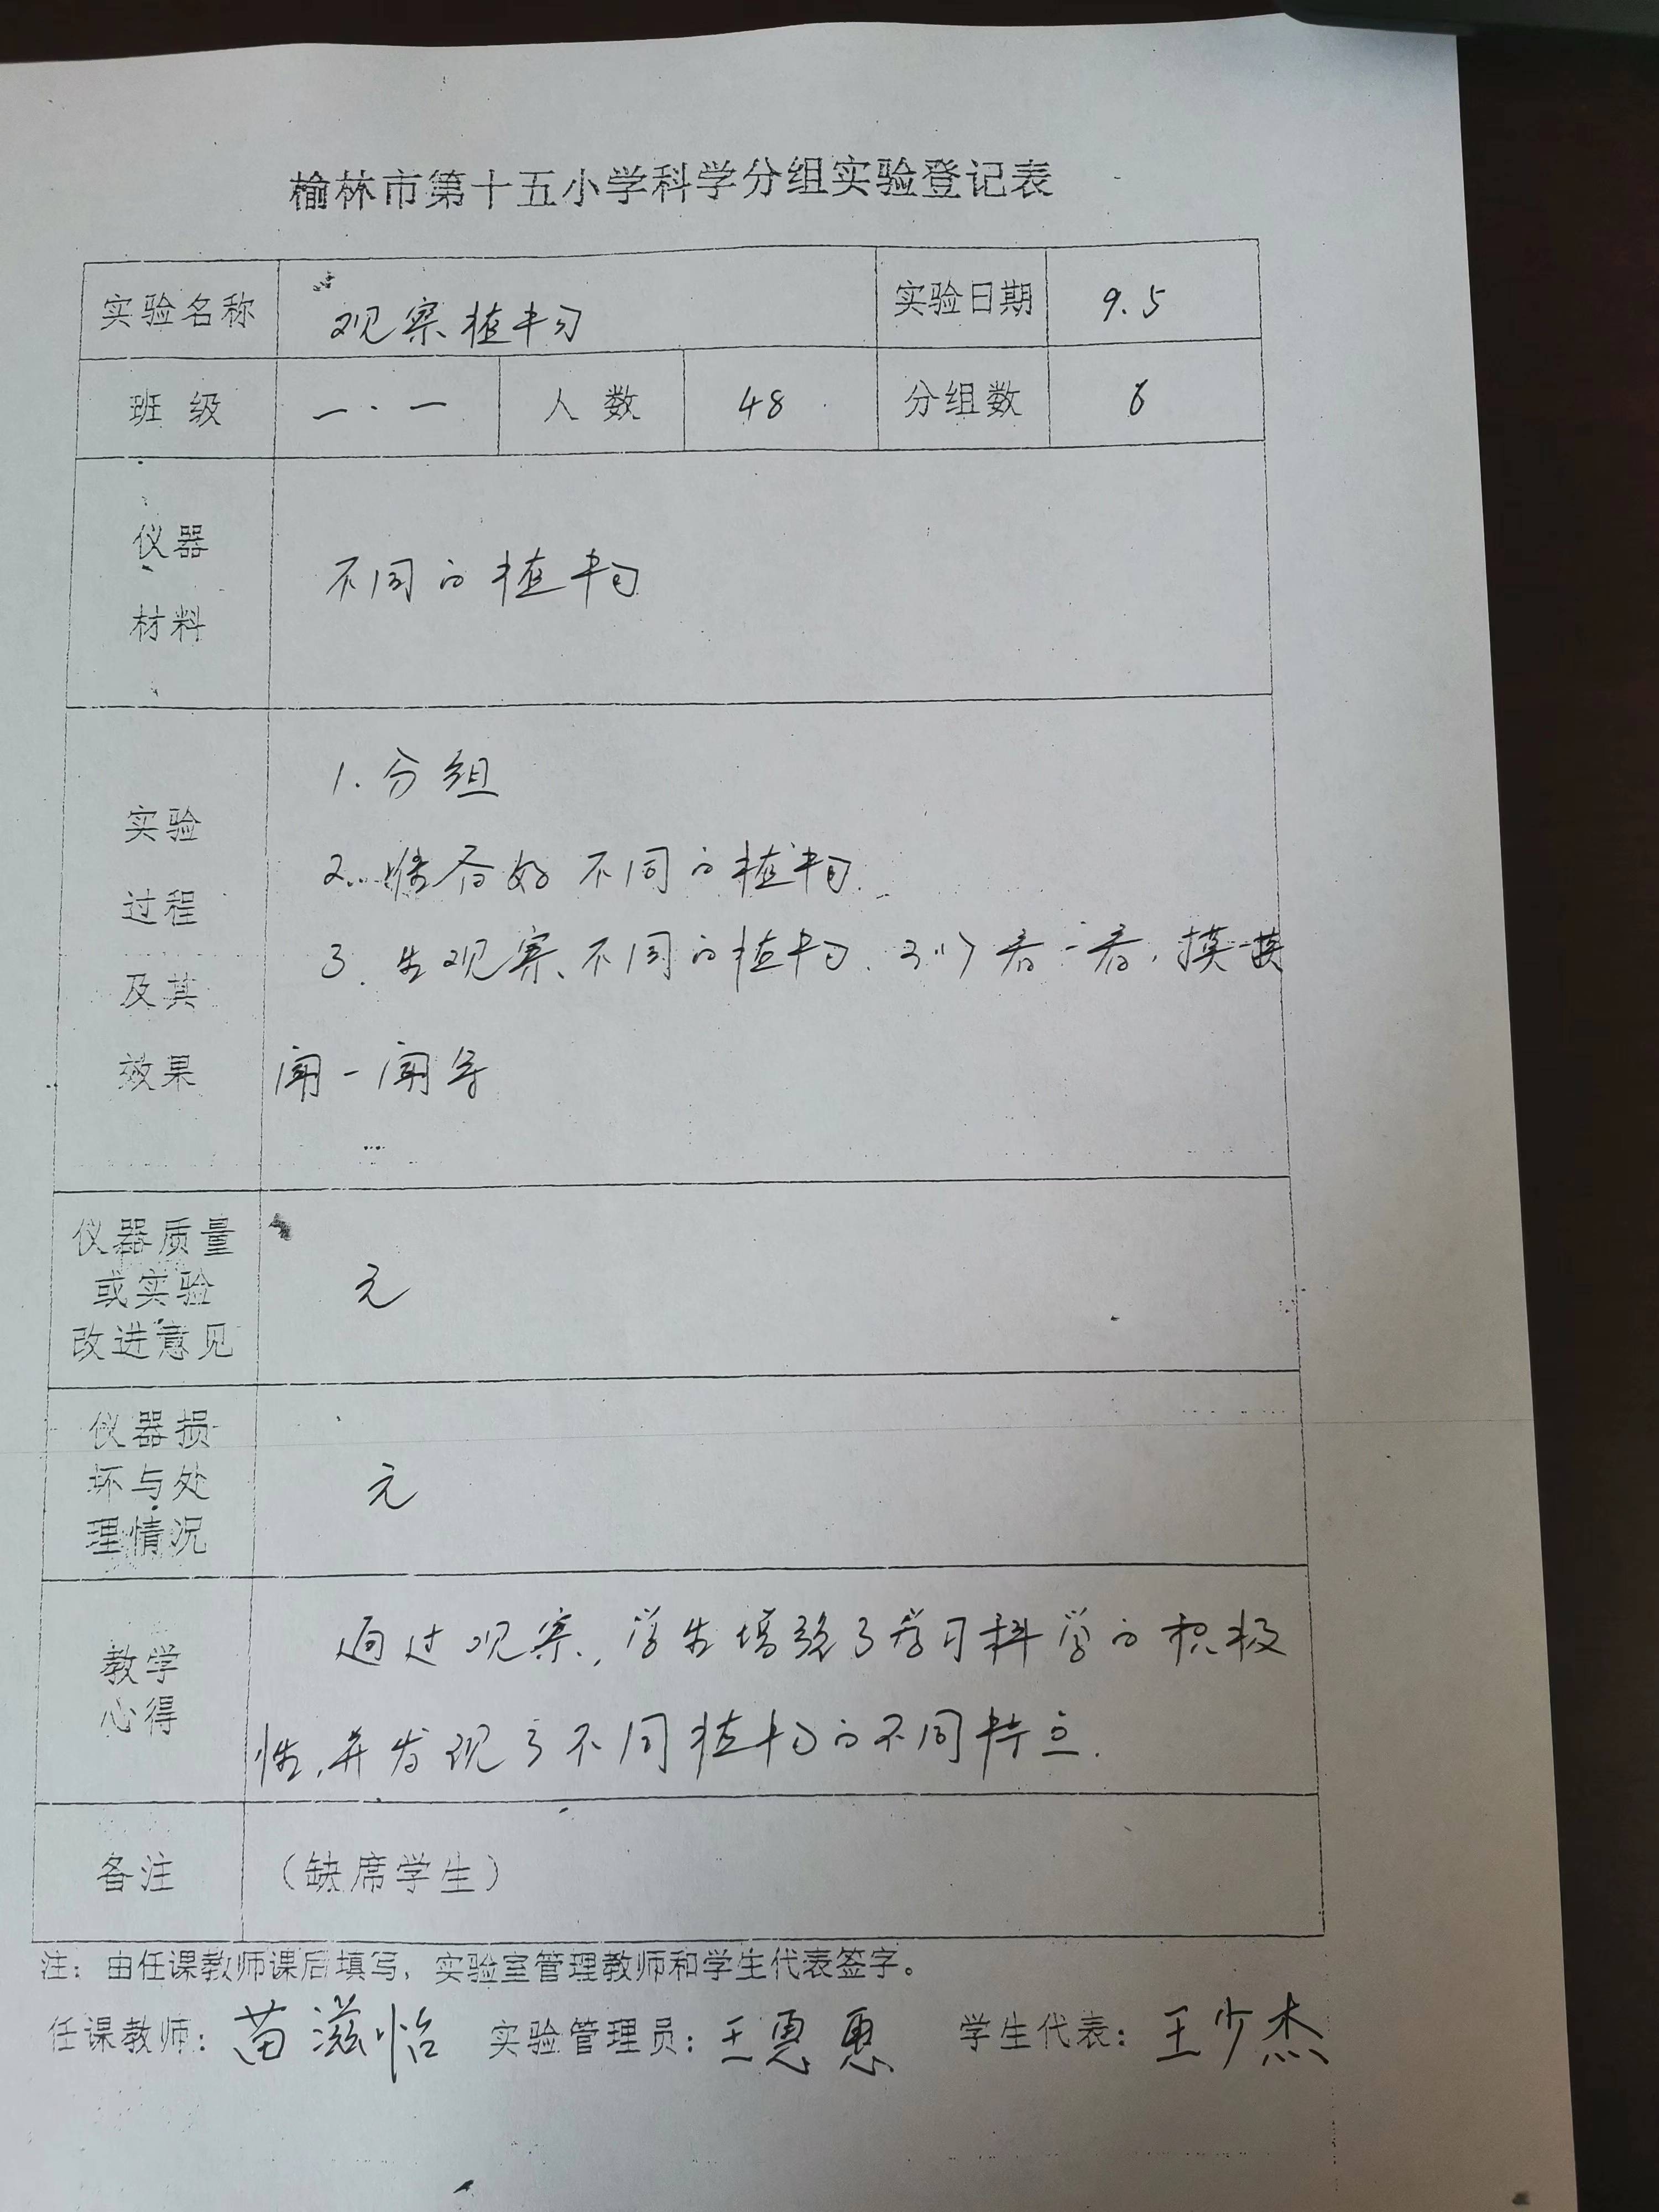 榆林市第十五小学科学分组实验登记表
实验名称 观察植物 实验日期 9.5
班级 一·一 人数 48 分组数 6
仪器
材料
不同的植物
实验
过程
及其
效果
1.分组
2.准备好不同的植物.
3.生观察不同的植物.可以看一看,摸一摸
闻一闻等
仪器质量
或实验
改进意见
无
仪器损
坏与处
理情况
无
教学
心得
通过观察,学生增强了学习科学的积极
性,并发现了不同植物的不同特点.
备注 (缺席学生)
注:由任课教师课后填写,实验室管理教师和学生代表签字。
任课教师:苗滋怡 实验管理员:王惠惠 学生代表:王少杰